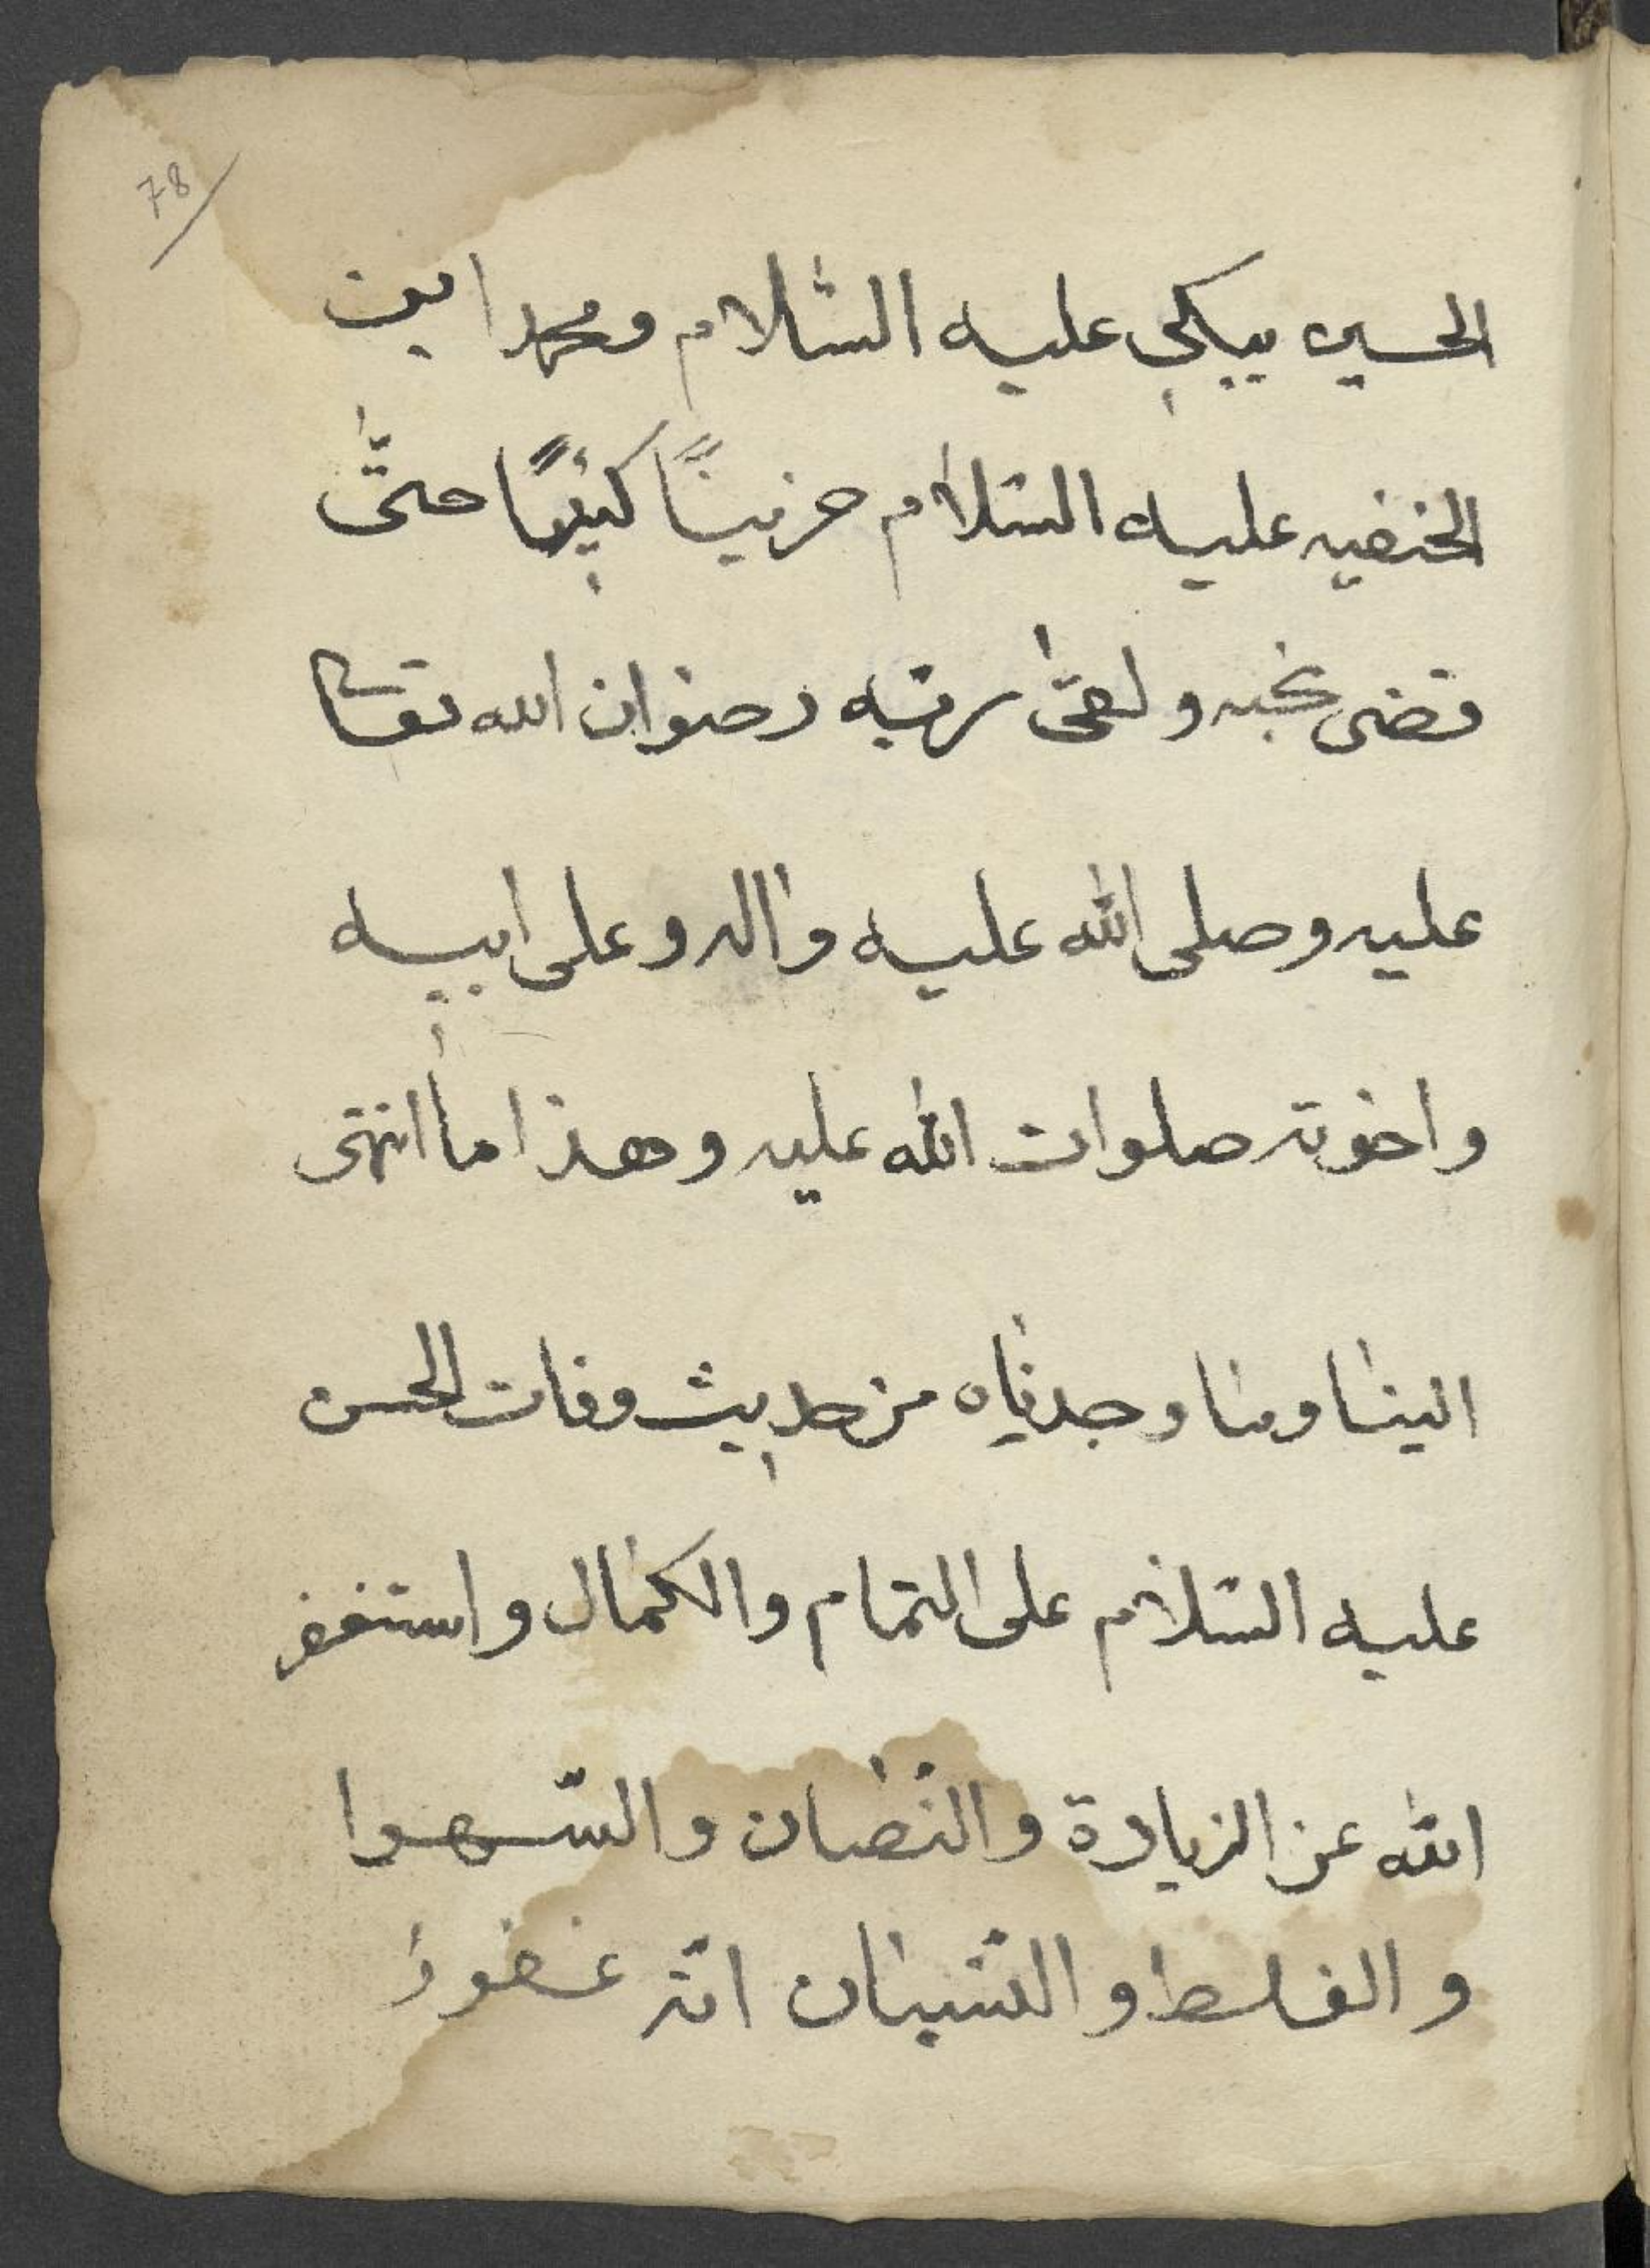 78
الحسين يبكي عليه السلام ومحمد ابن
الحنفيه عليه السلام حزينًا كئيبًا حتى
قضى نحبه ولقى ربه رضوان الله تعالى
عليه وصلى الله عليه واله وعلى ابيه
واخوته صلوات الله عليه وهذا ما انتهى
الينا وما وجدناه من حديث وفات الحسن
عليه السلام على التمام والكمال واستغفر
الله عن الزيادة والنقصان والسهوا
والغلط والنسيان انه غفور